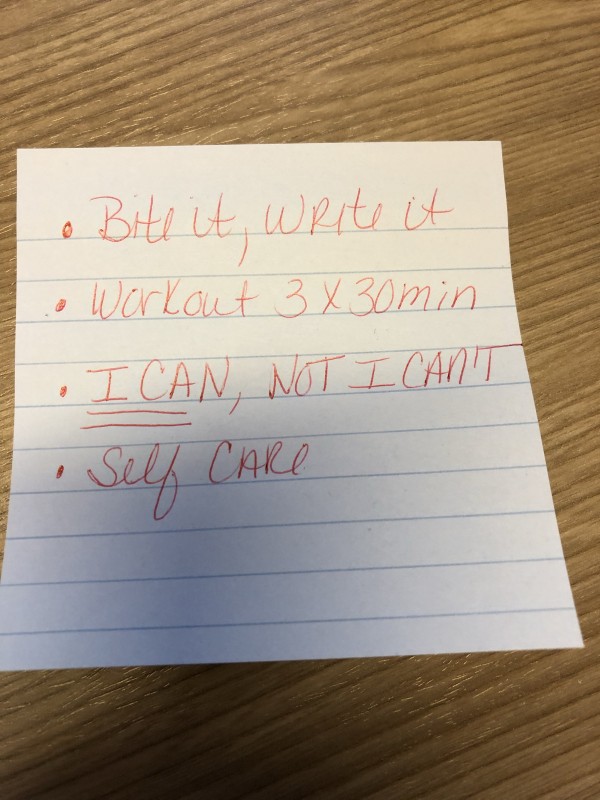 • Bite it, Write it
• Workout 3 x 30min
• I CAN, NOT I CAN'T
• Self CARe